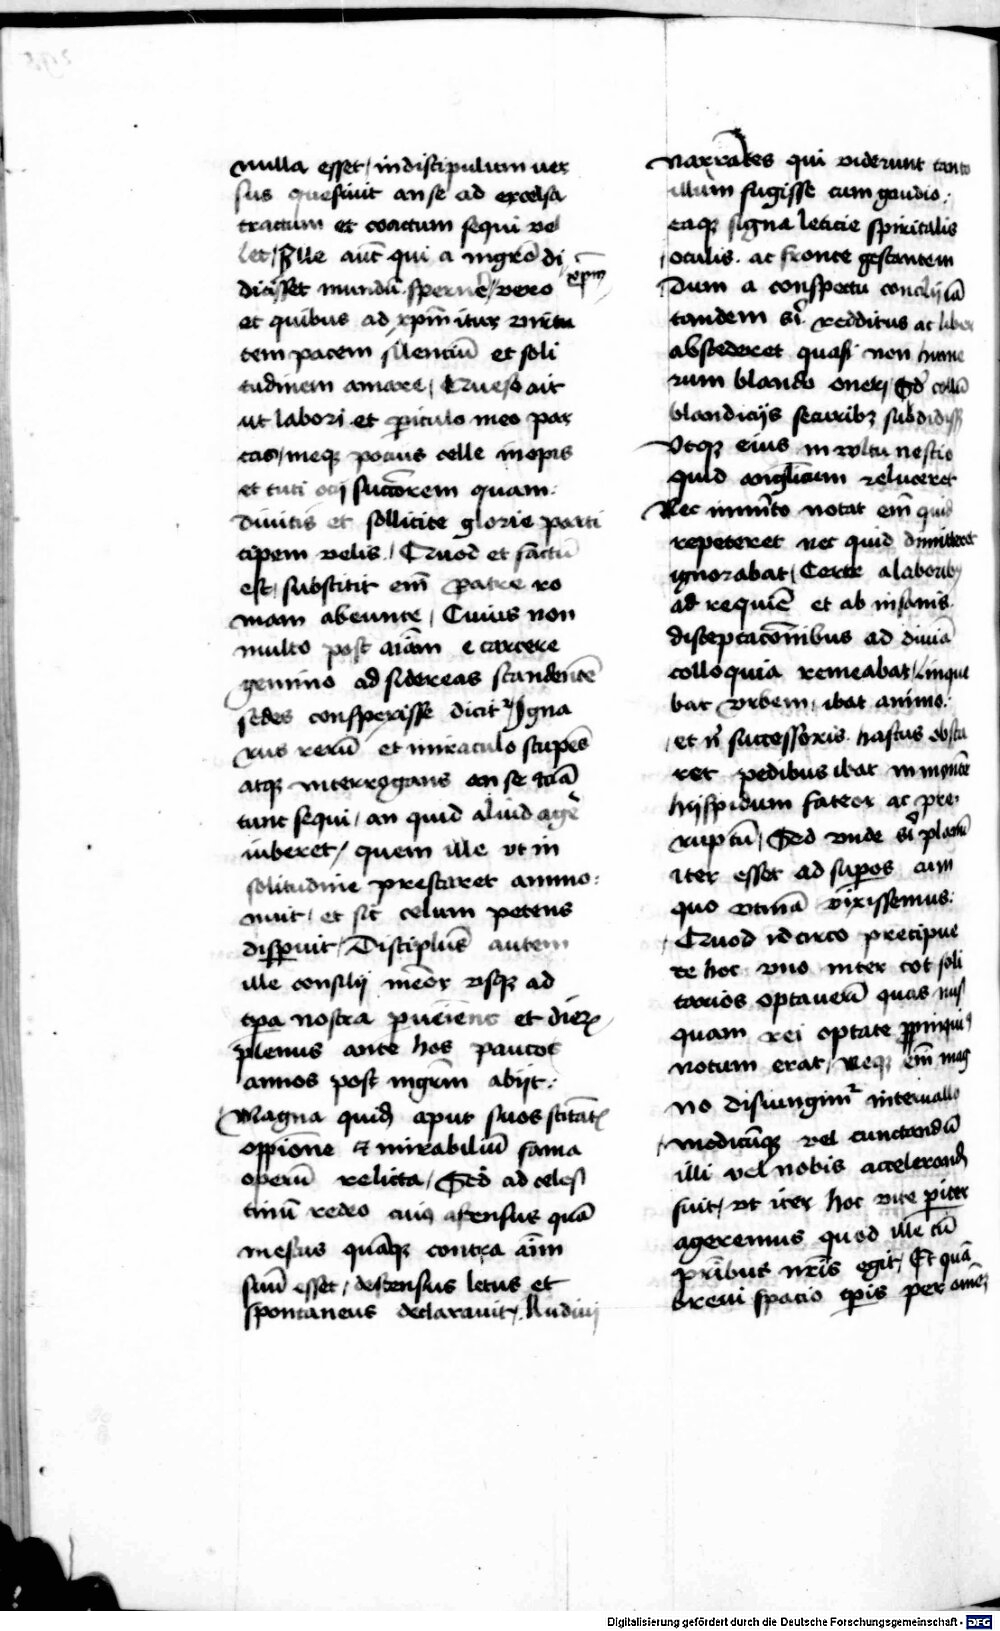 nulla esset / indiscipulum uer
sus quesiuit an se ad excelsa
tractum et coactum sequi vel
let / Ille aut̄ qui a mgrō di
dicisset mundū spernē / vero xp̄m
et quibus ad xp̄m itur virtu
tem pacem silenciū et soli
tudinem amare / Queso ait
ut labori et ꝑiculo meo par
cas / meqꝫ pocius celle inopis
et tuti ocij successorem quam:
diuitis et sollicite glorie parti
cipem velis / Quod et factū
est / substitit em̄ Patre ro
mam abeunte / Cuius non
multo post aīam e carcere
gemino ad sidereas scandentē
sedes conspexisse dicitr Igna
rus rerū et miraculo stupēs
atqꝫ interrogans an se etiā
tunc sequi / an quid aliud agē
iuberet / quem ille vt in
solitudine prestaret ammo:
nuit / et sic celum petens
disparuit / Discipulus autem
ille consilij memor vsqꝫ ad
tp̄a nostra pueniens et dierꝫ
plenus ante hos paucos
annos post mgrm̄ abijt:
Magna quidē aput suos scītatꝭ
oppinione et mirabiliū fama
operū relicta / Sed ad celesti
tinū redeo cuiꝰ ascensus quā
mestus quāqꝫ contra aīm
suū esset / descensus letus et
spontaneus declarauit / Audiui
narrātes qui viderunt tanto
illum fugisse cum gaudio:
eaqꝫ signa leticie spiritalis
oculis ac fronte gestantem
Dum a conspectu concilij iā
tandem sī redditus ac liber
abscederet quasi non hume
rum blando oneri / Sed collū
blandicijs securibꝫ subdidisset
Vtqꝫ eius in vultu nescio
quid angelicum reluceret
Nec inmīto notat em̄ quid
repeteret nec quid dimitteret
ignorabat / Certe a laboribꝫ
ad requiē et ab insanis
disceptacōnibus ad diuiā
colloquia remeabat / Linque
bat vrbem / ibat animo:
/ et n̄ successoris hastus obsta
ret pedibus ibat in montē
hijspidum fateor ac pre
ruptū / Sed vnde sī planū
iter esset ad superos cum
quo vtinā vixissemus:
/ Quod idcirco precipue
te hoc vno inter tot soli
tarios optauerī quas nus
quam rei optate ꝓpinquiꝰ
notum erat / Neqꝫ em̄ mag
no disiungimr interuallo
/ modicūqꝫ vel cunctandū
illi vel nobis accelerandū
fuit / vt iter hoc vite ꝑiter
ageremus quod ille cū
pr̄ibus nr̄is egit / Et quā
breui spacio tp̄is per omēs
Digitalisierung gefördert durch die Deutsche Forschungsgemeinschaft - DFG